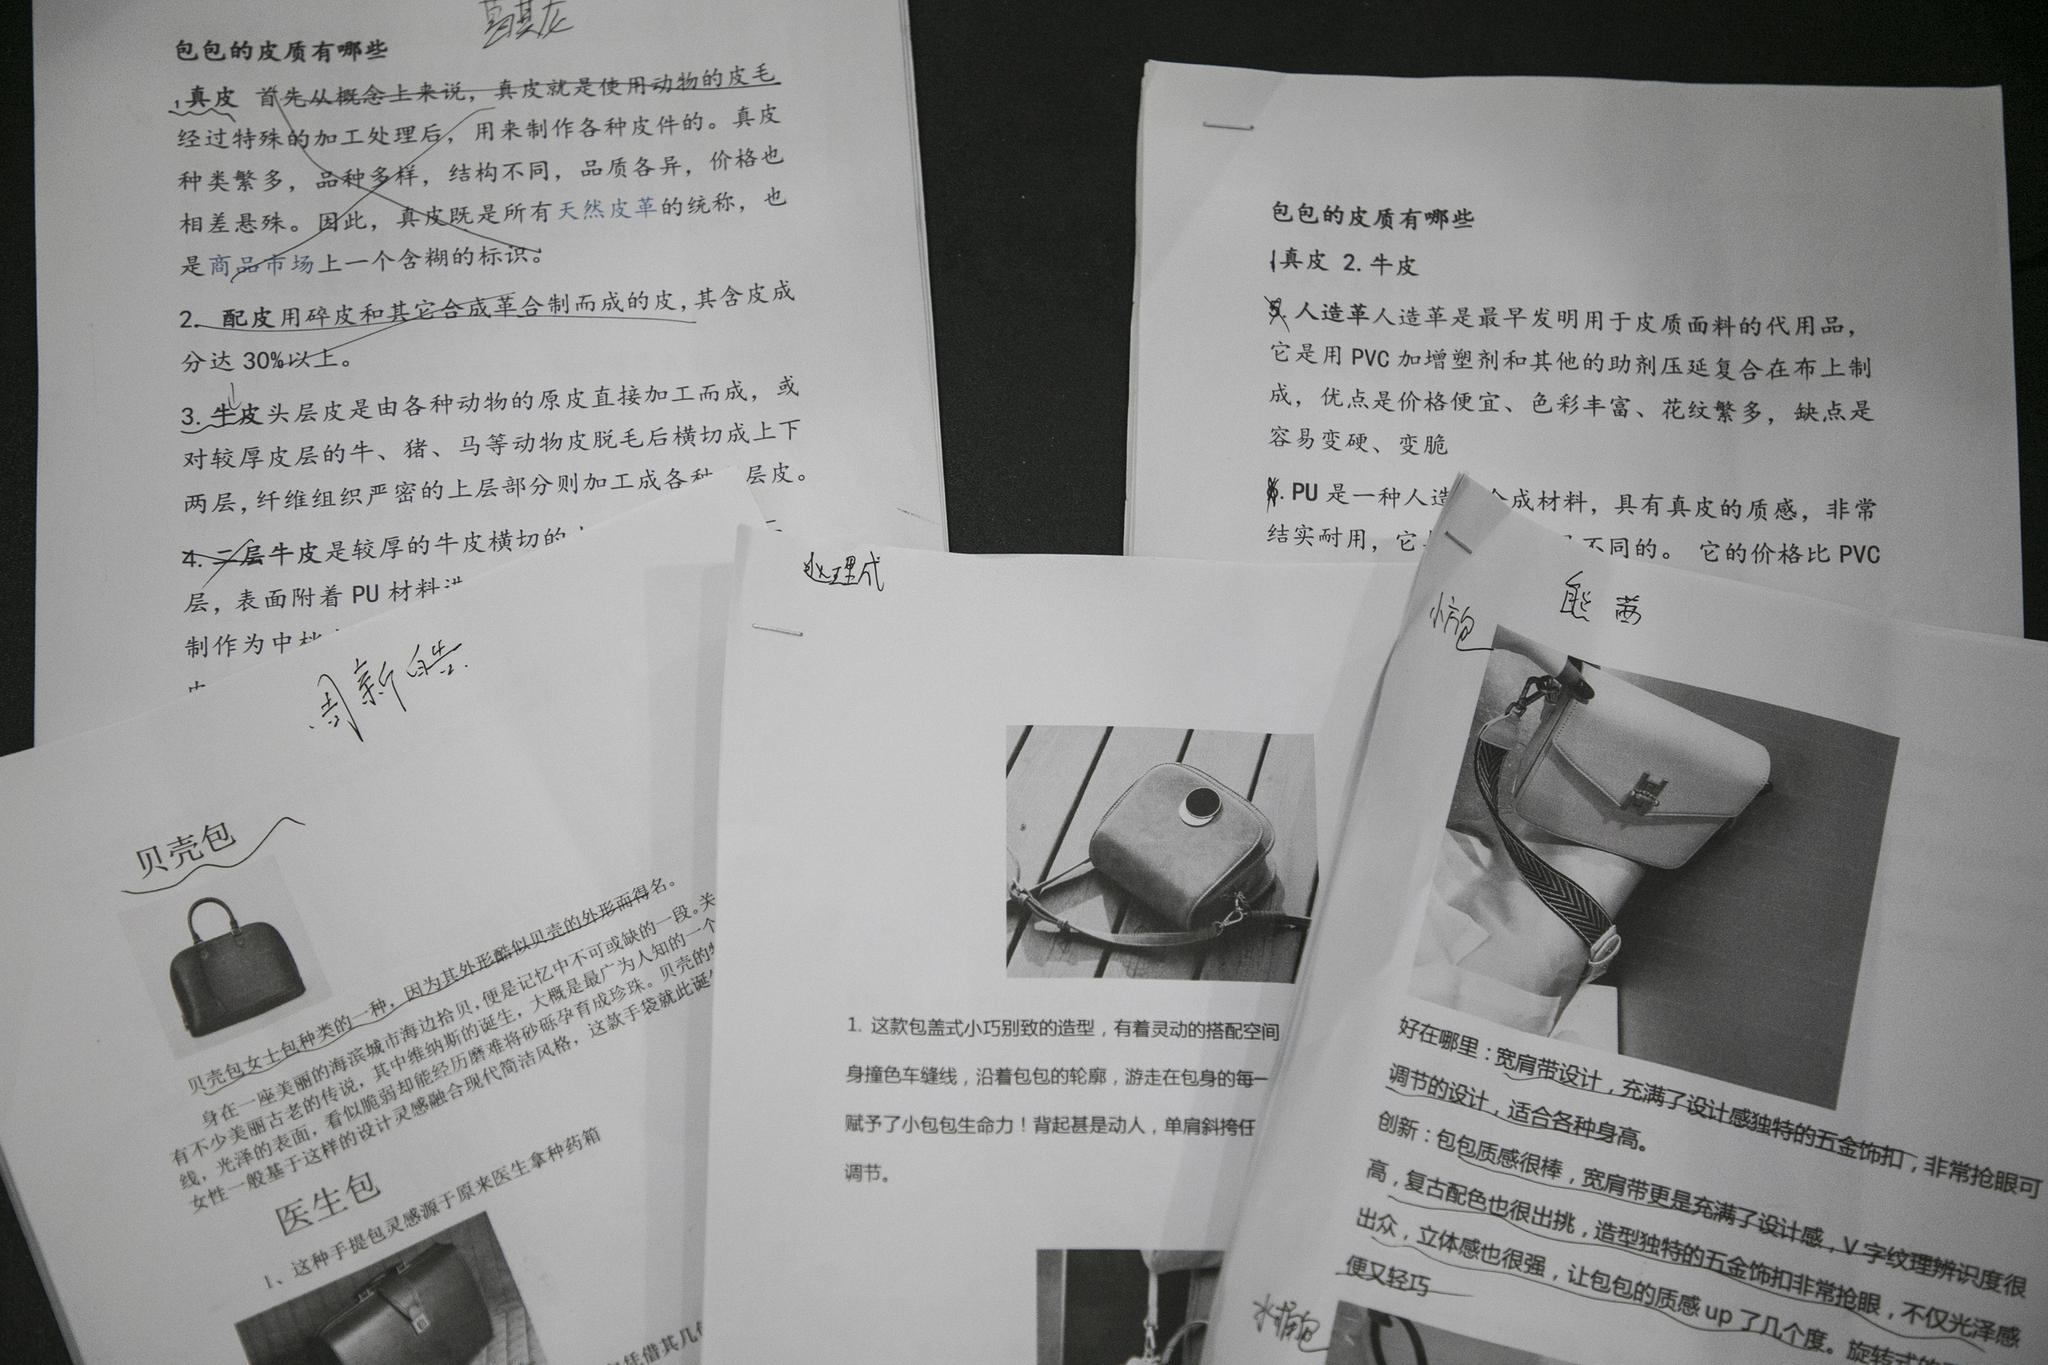 包包的皮质有哪些
1真皮 首先从概念上来说，真皮就是使用动物的皮毛
经过特殊的加工处理后，用来制作各种皮件的。真皮
种类繁多，品种多样，结构不同，品质各异，价格也
相差悬殊。因此，真皮既是所有天然皮革的统称，也
是商品市场上一个含糊的标识。
2. 配皮用碎皮和其它合成革合制而成的皮,其含皮成
分达 30%以上。
3. 牛皮头层皮是由各种动物的原皮直接加工而成，或
对较厚皮层的牛、猪、马等动物皮脱毛后横切成上下
两层,纤维组织严密的上层部分则加工成各种 层皮。
4. 二层牛皮是较厚的牛皮横切的
层，表面附着 PU 材料
制作为中
包包的皮质有哪些
1真皮 2. 牛皮
人造革人造革是最早发明用于皮质面料的代用品，
它是用 PVC 加增塑剂和其他的助剂压延复合在布上制
成，优点是价格便宜、色彩丰富、花纹繁多，缺点是
容易变硬、变脆
. PU 是一种人造 合成材料，具有真皮的质感，非常
结实耐用，它 不同的。 它的价格比 PVC
周新
贝壳包
贝壳包女士包种类的一种，因为其外形酷似贝壳的外形而得名。
身在一座美丽的海滨城市海边拾贝,便是记忆中不可或缺的一段。关
有不少美丽古老的传说，其中维纳斯的诞生，大概是最广为人知的一个
线，光泽的表面，看似脆弱却能经历磨难将砂砾孕育成珍珠。贝壳的
女性一般基于这样的设计灵感融合现代简洁风格，这款手袋就此诞
医生包
1、这种手提包灵感源于原来医生拿种药箱
凭借其几
1. 这款包盖式小巧别致的造型，有着灵动的搭配空间
身撞色车缝线，沿着包包的轮廓，游走在包身的每一
赋予了小包包生命力！背起甚是动人，单肩斜挎任
调节。
熊茜
小方包
好在哪里：宽肩带设计，充满了设计感独特的五金饰扣，非常抢眼可
调节的设计，适合各种身高。
创新：包包质感很棒，宽肩带更是充满了设计感，V 字纹理辨识度很
高，复古配色也很出挑，造型独特的五金饰扣非常抢眼，不仅光泽感
出众，立体感也很强，让包包的质感 up 了几个度。旋转式的
便又轻巧
水桶包